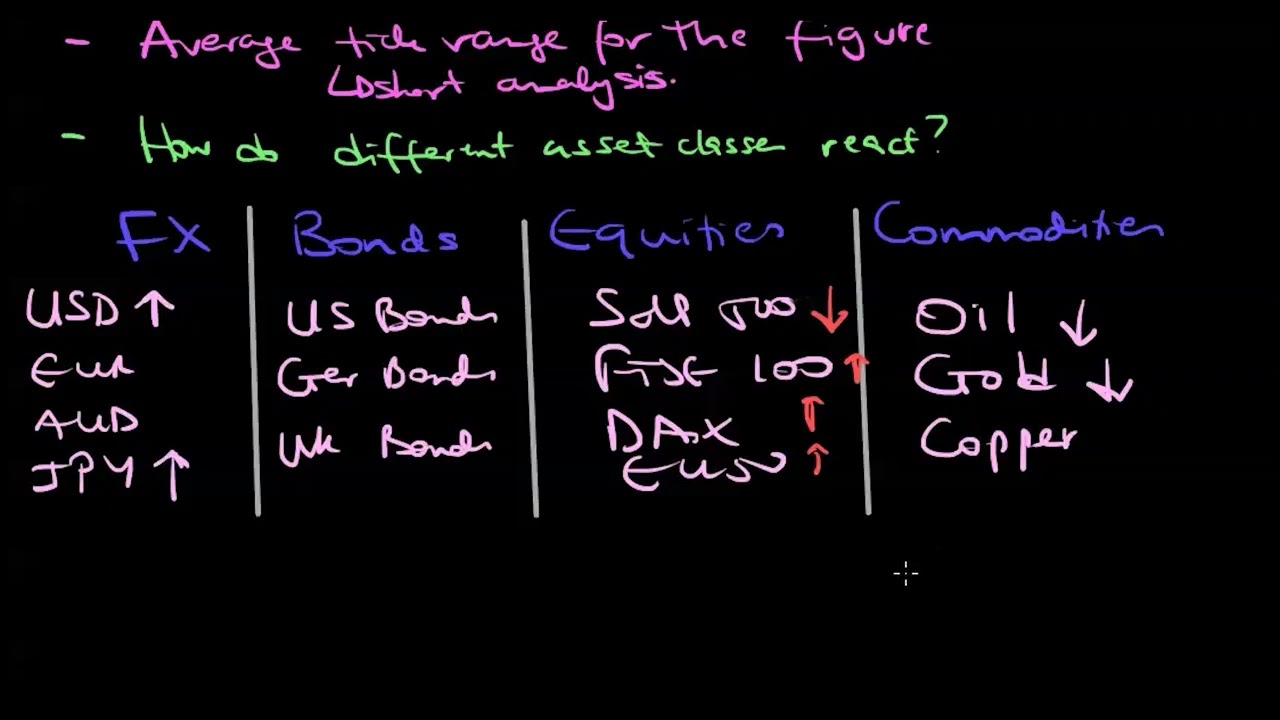 - Average tick range for the figure
↳ short analysis.
- How do different asset classes react?
FX Bonds Equities Commodities
USD ↑ US Bonds S&P 500 ↓ Oil ↓
EUR Ger Bonds FTSE 100 ↑ Gold ↓
AUD UK Bonds DAX ↑ Copper
JPY ↑ ↑